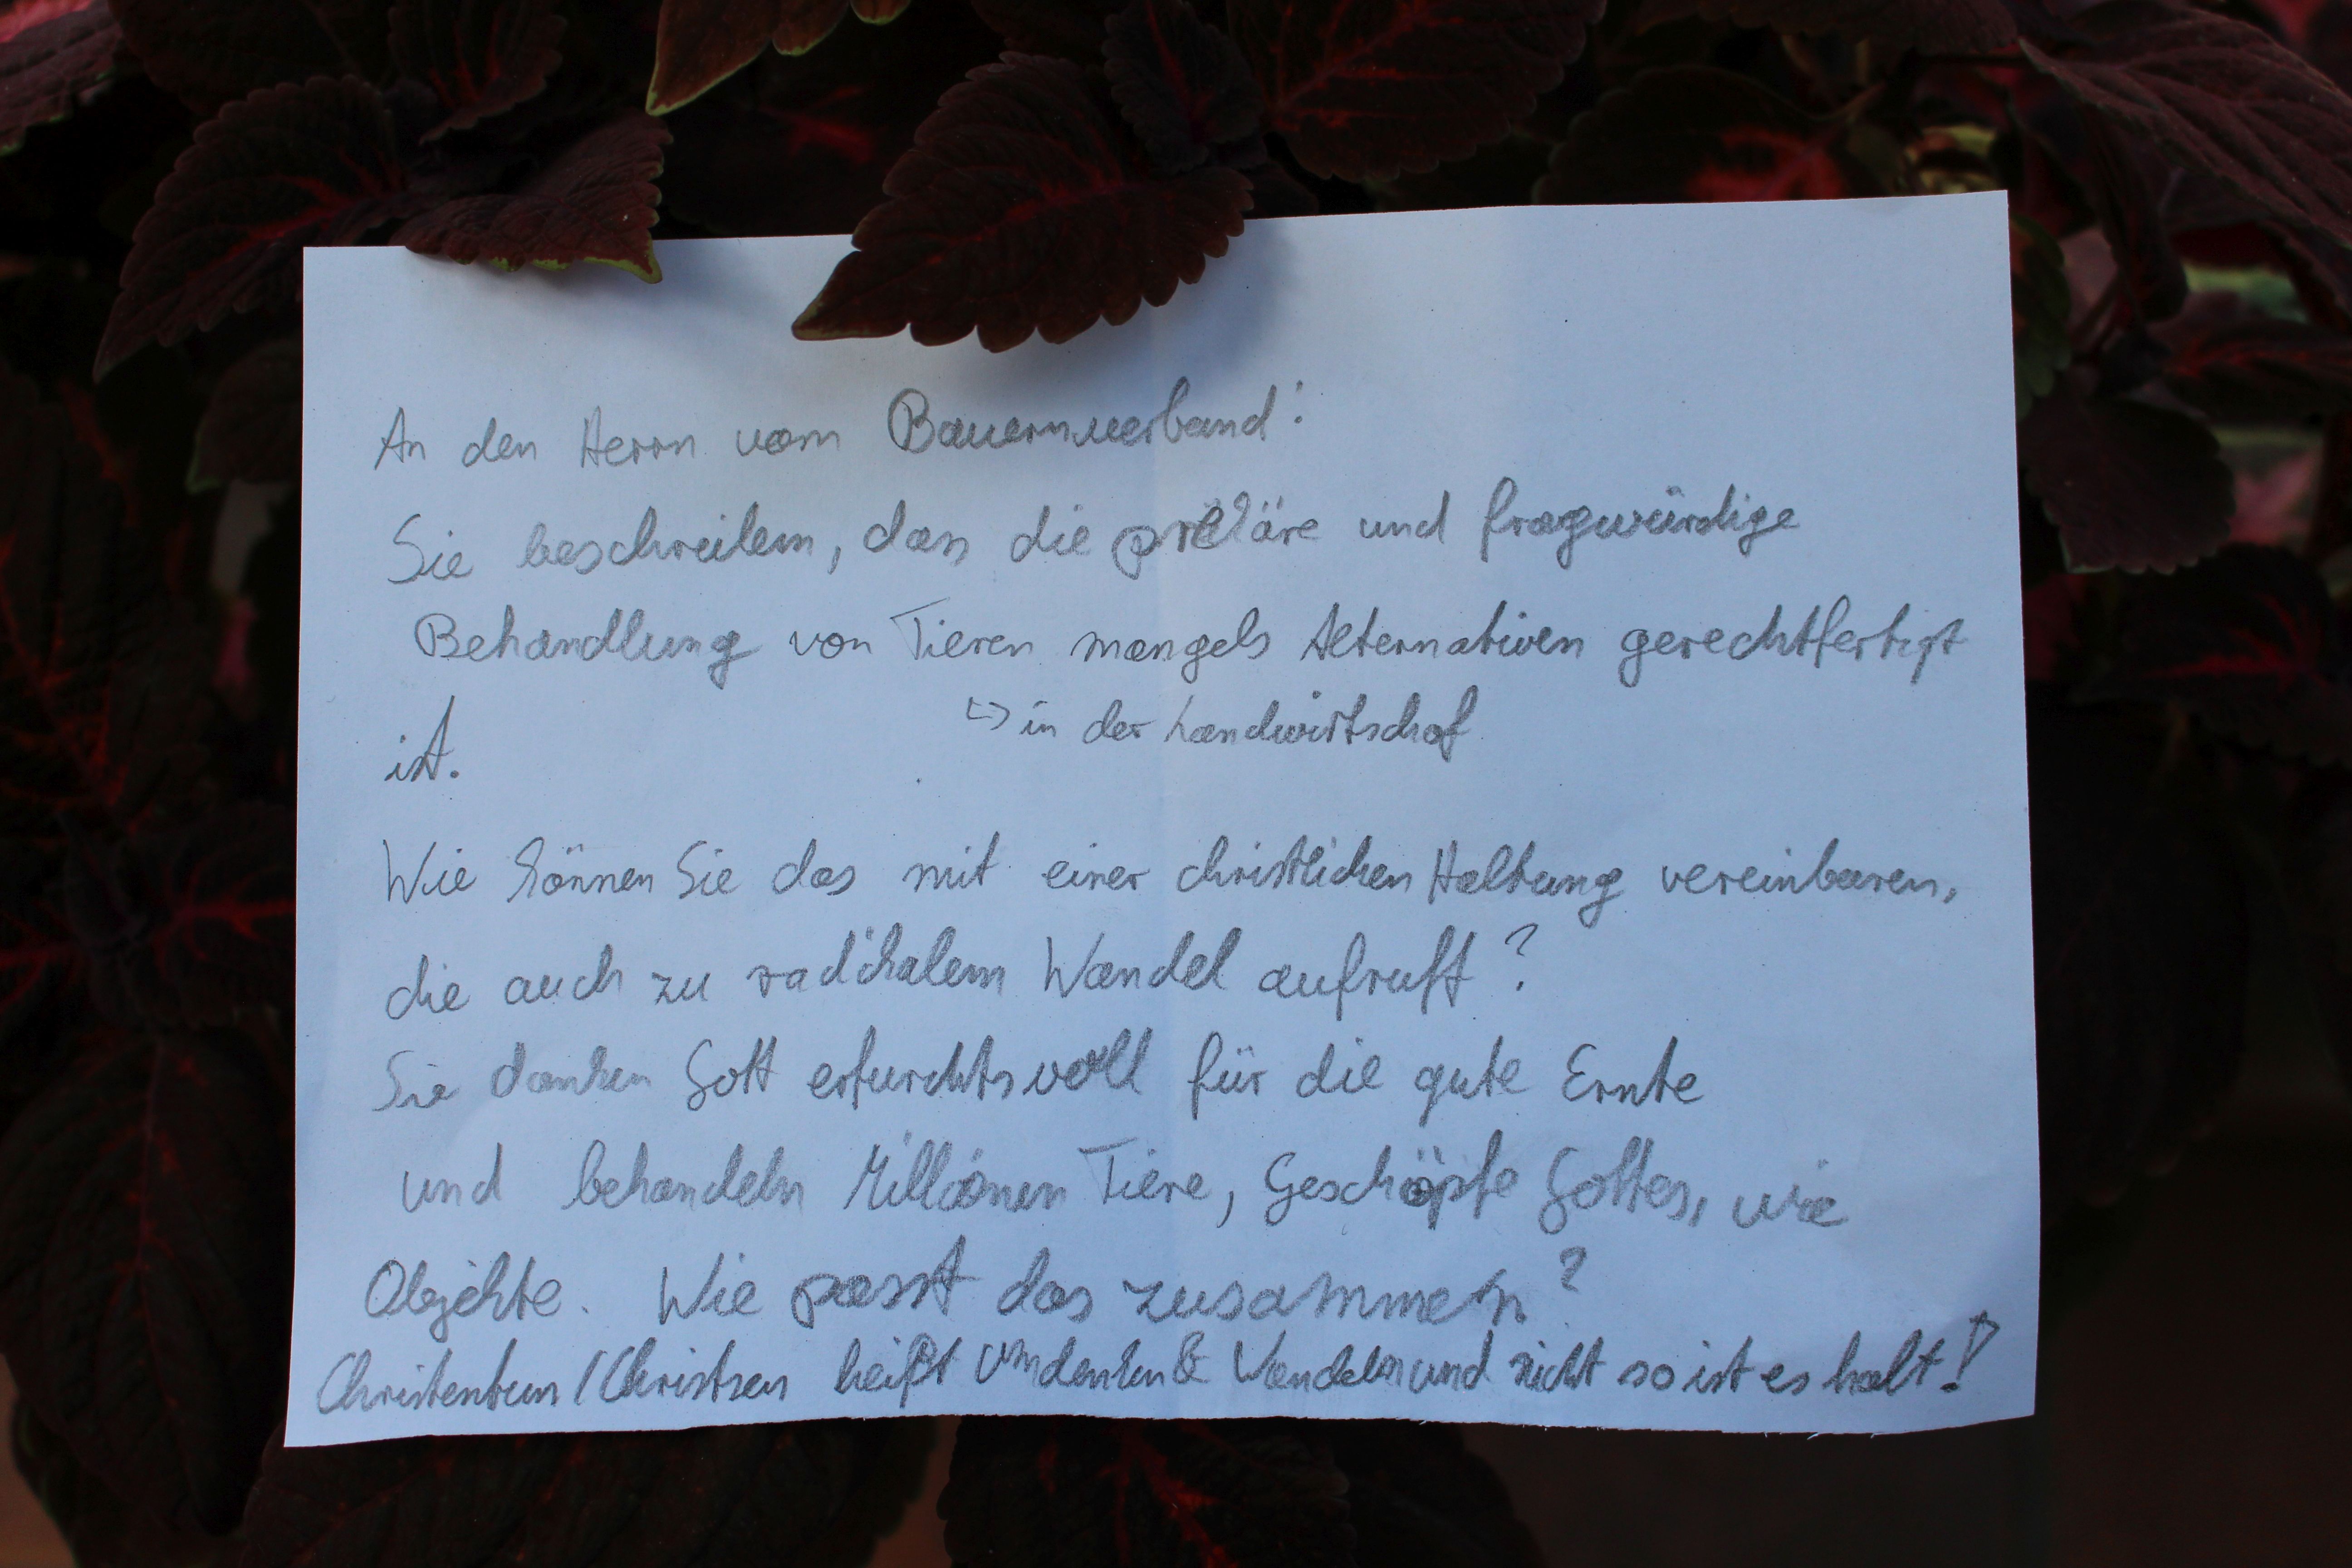 An den Herrn vom Bauernverband:
Sie beschreiben, dass die prekäre und fragwürdige
Behandlung von Tieren mangels Alternativen gerechtfertigt
↳ in der Landwirtschaf
ist.
Wie können Sie das mit einer christlichen Haltung vereinbaren,
die auch zu radikalem Wandel aufruft?
Sie danken Gott erfurchtsvoll für die gute Ernte
und behandeln Millionen Tiere, Geschöpfe Gottes, wie
Objekte. Wie passt das zusammen?
Christentum / Christsen heißt Umdenken & Wandeln und nicht so ist es halt!